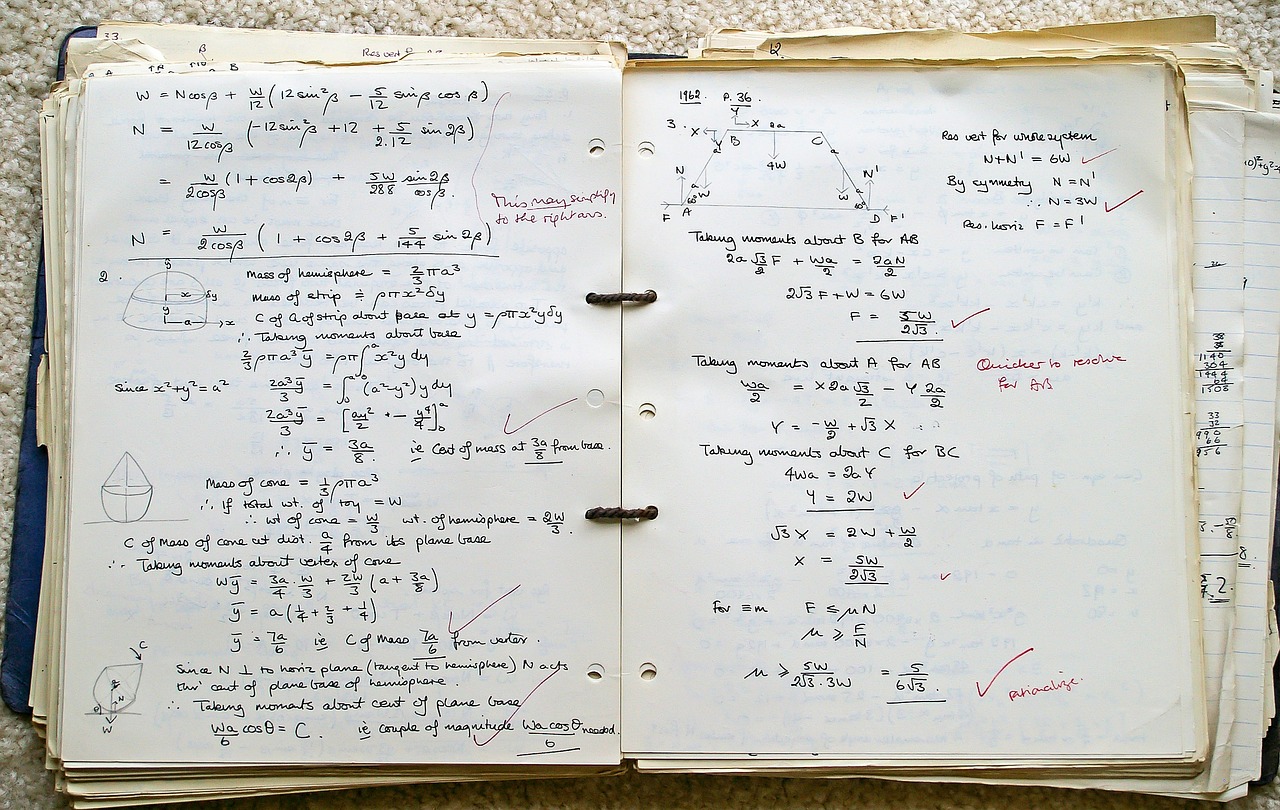 33.
β
Res vert
B
W = Ncosβ + W/12 (12sin²β − 5/12 sinβ cosβ)
N = W/12cosβ (−12sin²β + 12 + 5/2.12 sin2β)
= W/2cosβ (1 + cos2β) + 5W/288 sin2β/cosβ.
This may simplify
to the right ans.
N = W/2cosβ (1 + cos2β + 5/144 sin2β)
2.
y
x δy
y
a x
Mass of hemisphere = 2/3 πa³
Mass of strip ≑ ρπx²δy
C of G of strip about base at y = ρπx²yδy
∴ Taking moments about base
2/3 ρπa³ȳ = ρπ∫₀ᵃ x²y dy
Since x²+y²=a² 2a³ȳ/3 = ∫₀ᵃ (a²−y²)y dy
2a³ȳ/3 = [ay²/2 − y⁴/4]₀ᵃ
∴ ȳ = 3a/8 ie Cent of mass at 3a/8 from base.
Mass of cone = 1/3 ρπa³
∴ If total wt. of toy = W
∴ wt of cone = W/3 wt. of hemisphere = 2W/3.
C of Mass of cone at dist. a/4 from its plane base
∴ Taking moments about vertex of cone
Wȳ = 3a/4 . W/3 + 2W/3 (a + 3a/8)
ȳ = a(1/4 + 2/3 + 1/4)
ȳ = 7a/6 ie C of Mass 7a/6 from vertex.
C
θ N
W
Since N ⊥ to horiz plane (tangent to hemisphere) N acts
thro' cent of plane base of hemisphere.
∴ Taking moments about cent of plane base
Wa/6 cosθ = C. ie couple of magnitude Wa cosθ/6 needed.
12.
1962. P. 36.
Y
3. X X 2a
Y B C
a a
4W
N a W W a N'
60° 60°
F A D F'
Res vert for whole system
N+N' = 6W
By symmetry N = N'
∴ N = 3W
Res. horiz F = F'
Taking moments about B for AB
2a √3/2 F + Wa/2 = 2aN/2
2√3 F + W = 6W
F = 5W/2√3.
Taking moments about A for AB
Quicker to resolve
for AB
Wa/2 = X 2a √3/2 − Y 2a/2
Y = −W/2 + √3 X
Taking moments about C for BC
4Wa = 2aY
Y = 2W
√3 X = 2W + W/2
X = 5W/2√3
For ≡m F ≤ μN
μ ≥ F/N
μ ≥ 5W/2√3.3W = 5/6√3.
rationalize.
38
38
1140
304
1444
64
1508
33
32
990
66
956